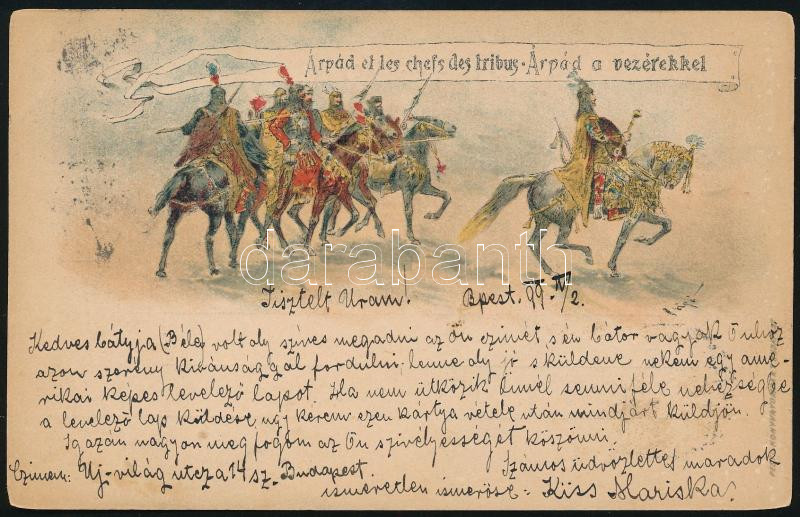 Árpád et les chefs des tribus · Árpád a vezérekkel
Tisztelt Uram. Bpest. 99 IV/2.
Kedves bátyja (Béla) volt oly szíves megadni az ön czimét, s én bátor vagyok Önhöz
azon szerény kivánsággal fordulni, lenne oly jó s küldene nekem egy ame-
rikai képes levelező lapot. Ha nem ütközik Önnél semmi féle nehézségbe
a levelező lap küldése, ugy kérem ezen kártya vétele után mindjárt küldjön.
Igazán nagyon meg fogom az Ön szivélyességét köszönni.
Czimem: Uj-világ utcza 14 sz. Budapest. Számos üdvözlettel maradok
ismeretlen ismerőse: Kiss Mariska.
darabanth